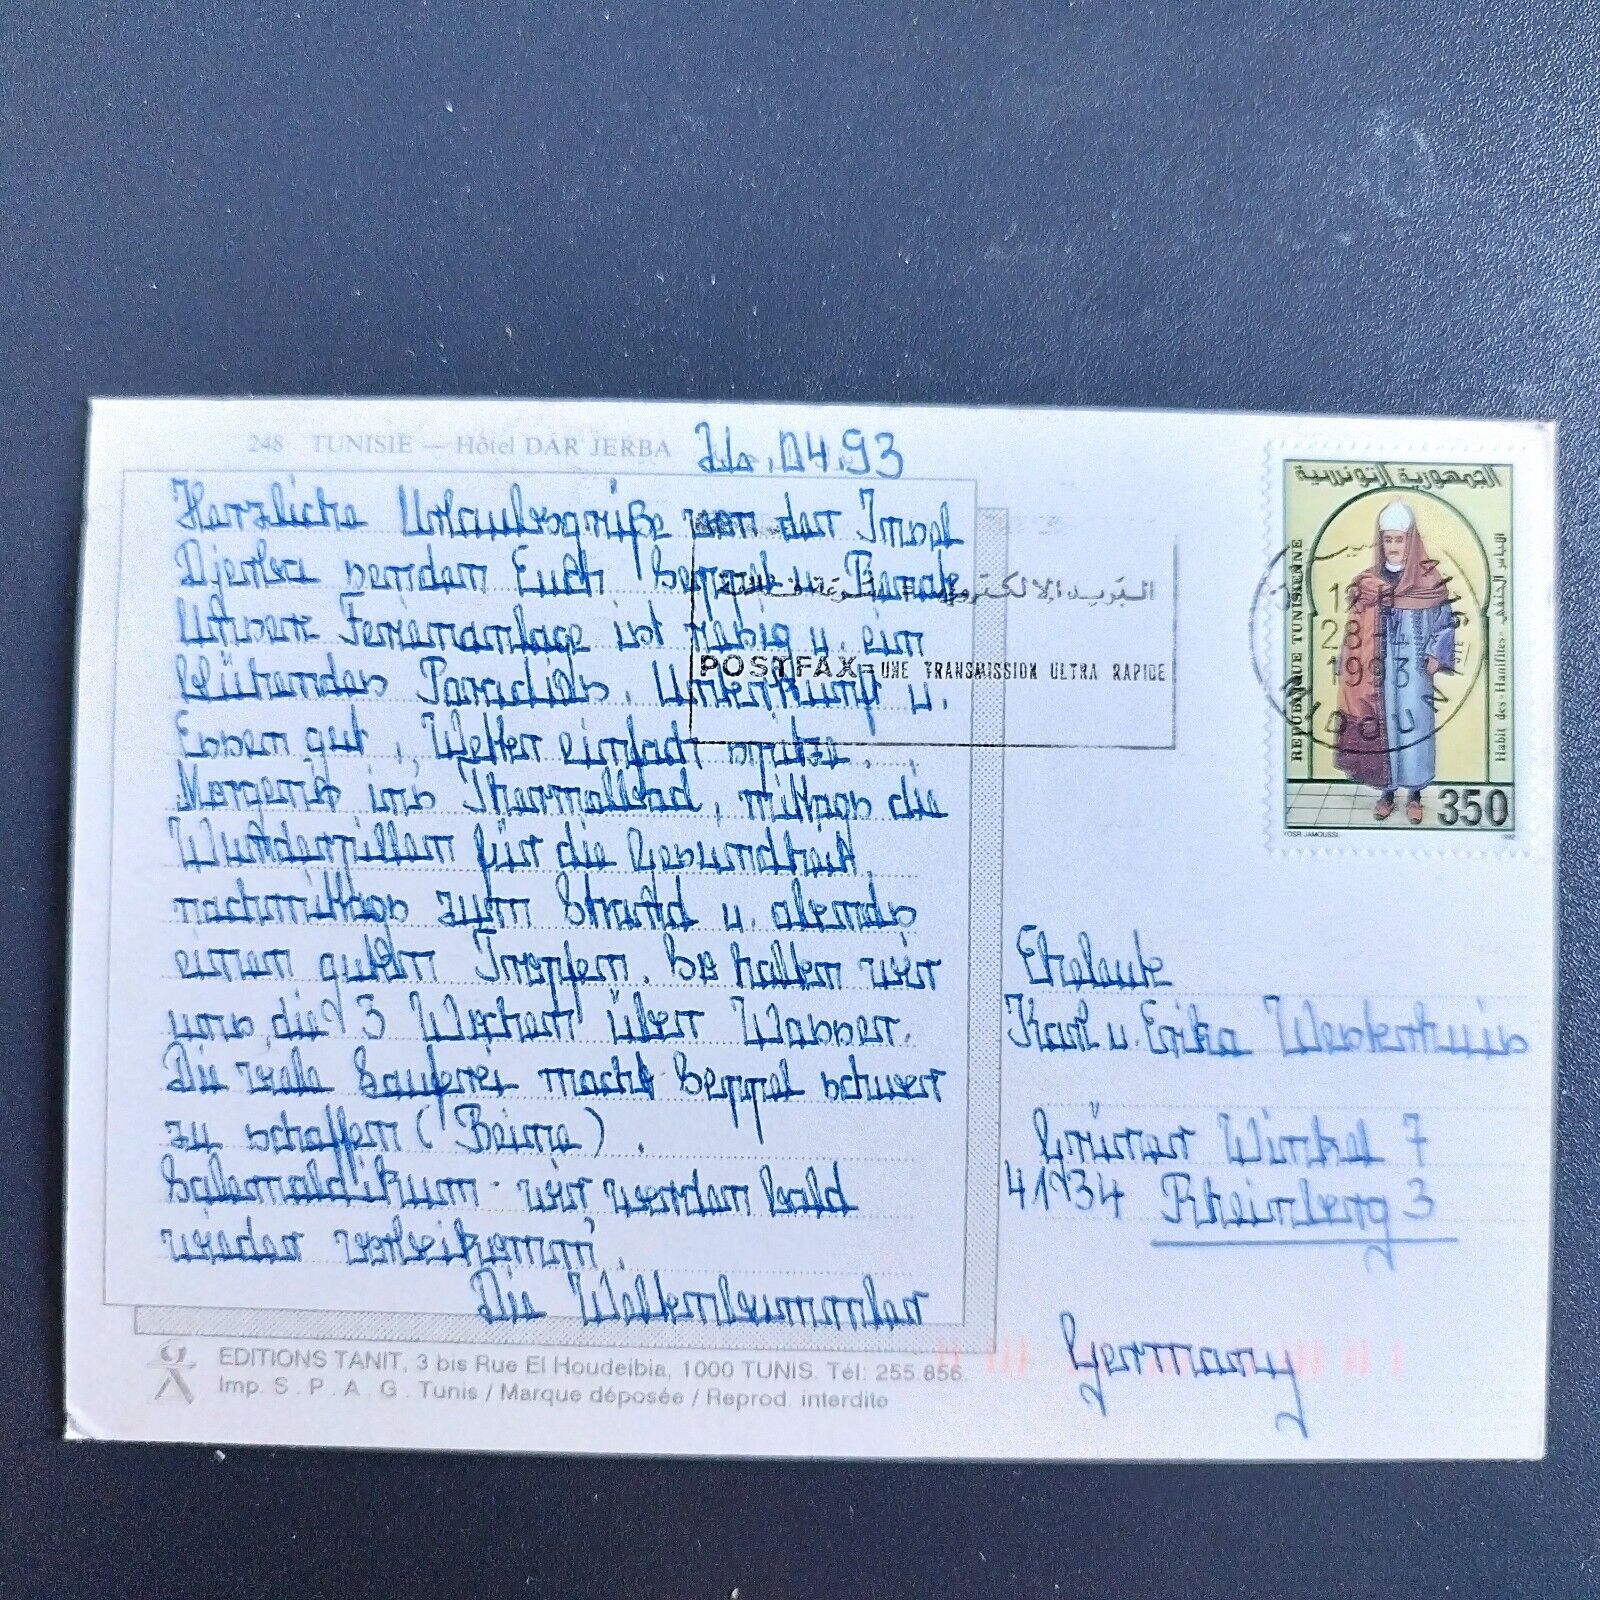 248 TUNISIE — Hôtel DAR JERBA
.04.93
Herzliche Urlaubsgrüße von der Insel
Djerba senden Euch Seppel u. Renate
Unsere Ferienanlage ist riesig u. ein
blühendes Paradies. Unterkunft u.
Essen gut, Wetter einfach spitze.
Morgens ins Thermalbad, mittags die
für die Gesundheit,
nachmittags zum Strand u. abends
einen guten Tropfen. So halten wir
uns die 3 Wochen über Wasser.
Die viele Lauferei macht Seppel schwer
zu schaffen (Beine).
Salemaleikum - wir werden bald
wieder
Die Wolkenbummler
EDITIONS TANIT, 3 bis Rue El Houdeibia, 1000 TUNIS. Tél: 255.856.
Imp. S.P.A.G. Tunis / Marque déposée / Reprod. interdite
البريد الالكتروني
POSTFAX = UNE TRANSMISSION ULTRA RAPIDE
الجمهورية التونسية
REPUBLIQUE TUNISIENNE
اللباس الحنفي
Habit des «Hanifites»
350
YOSR JAMOUSSI
1992
28
1993
MIDOUN
Eheleute
Karl u. Erika Westerhuis
Grüner Winkel 7
41934 Rheinberg 3
Germany